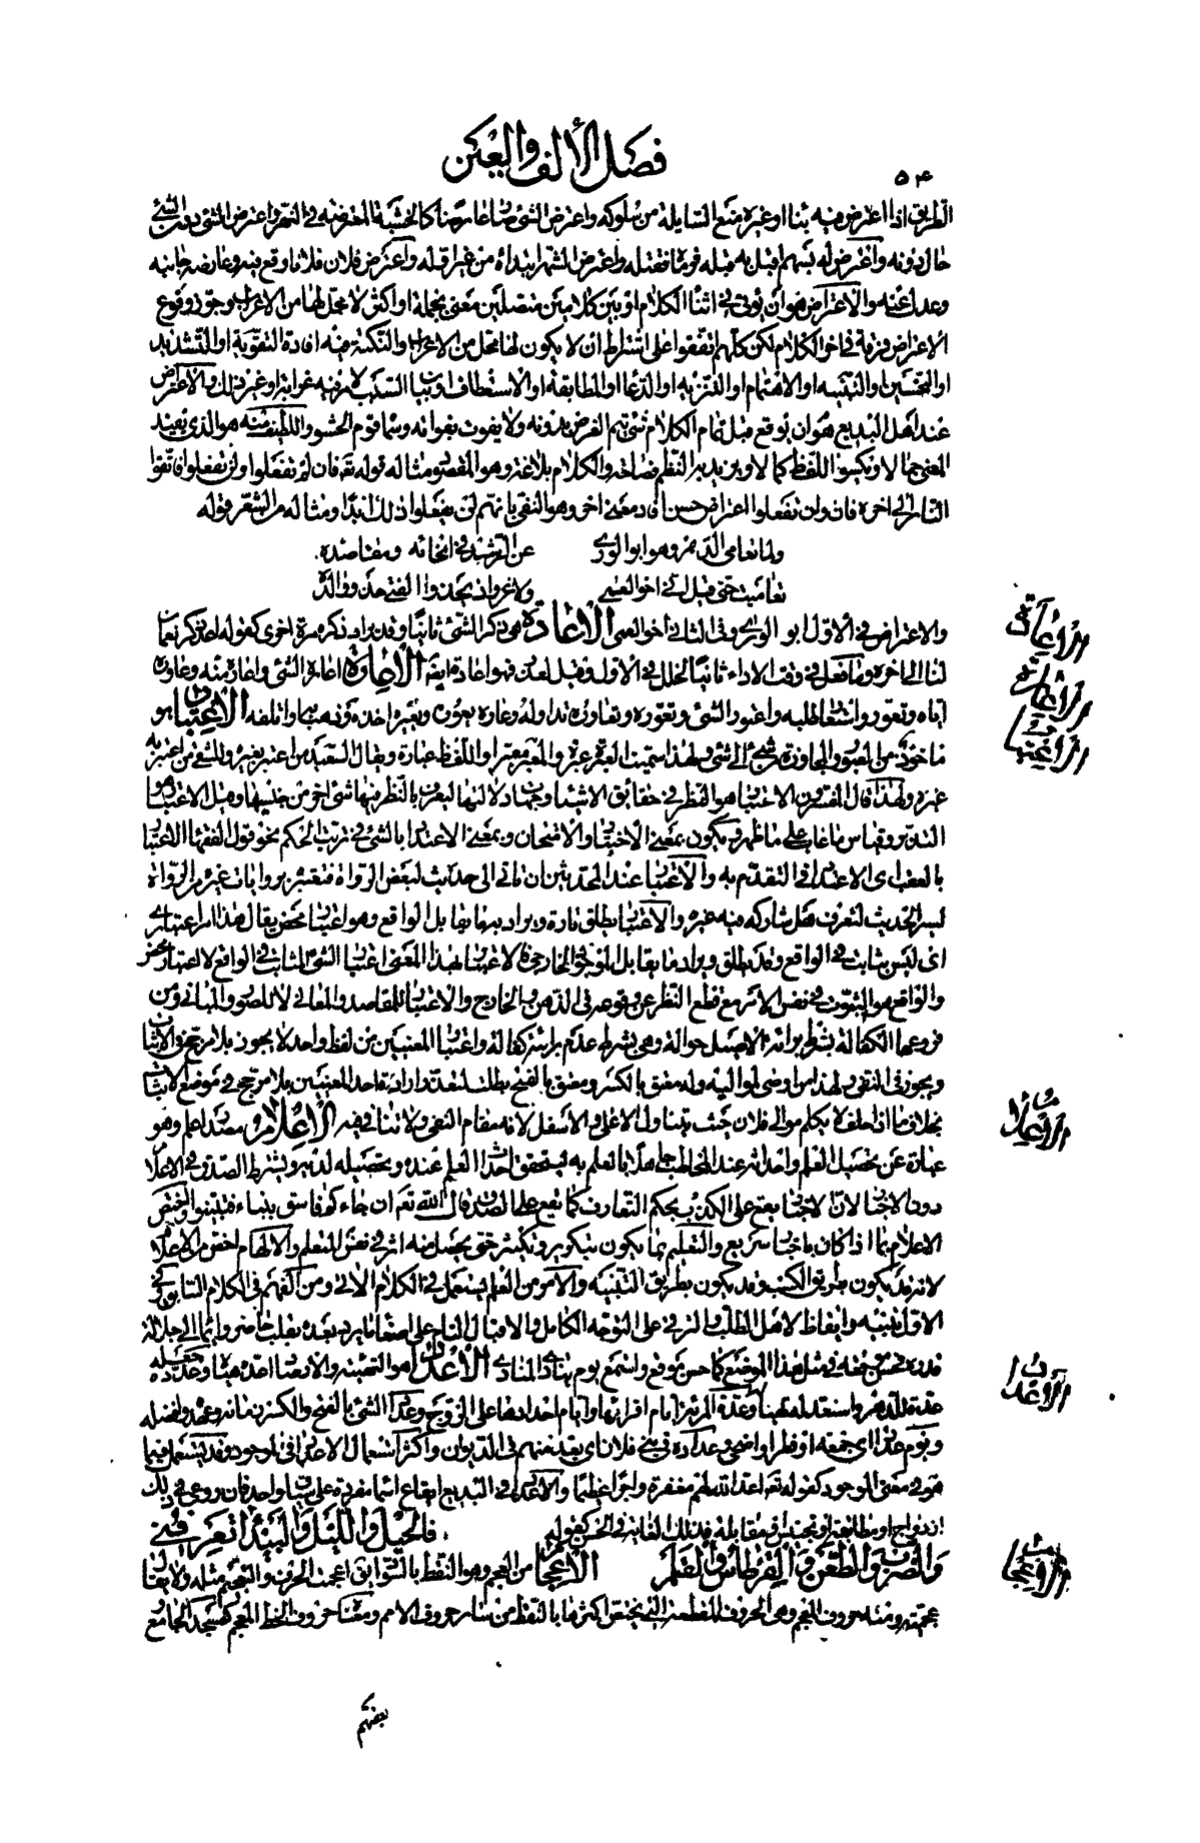 فصل الألف والعين
٥٤
الطريق اذا اعترض فيه بناء او غيره منع السابلة من سلوكه واعترض الشئ صار عارضا كالخشبة المعترضة في النهر واعترض الشئ دون الشئ
حال دونه واعترض له بسهم اقبل به قبله فرماه فقتله واعترض الشهر ابتداه من غير اوله واعترض فلان فلانا وقع فيه وعارضه جانبه
وعدل عنه والاعتراض هو ان يؤتى في اثناء الكلام او بين كلامين متصلين معنى بجملة او اكثر لا محل لها من الاعراب وجوز وقوع
الاعتراض فرقة في اخر الكلام لكن كلهم اتفقوا على اشتراط ان لا يكون لها محل من الاعراب والنكتة فيه افادة التقوية او التشديد
او التحسين او التنبيه او الاهتمام او التنزيه او الدعاء او المطابقة او الاستعطاف او بيان السبب لامر فيه غرابة او غير ذلك والاعتراض
عند اهل البديع هو ان يوقع قبل تمام الكلام شئ يتم الغرض بدونه ولا يفوت بفواته وسماه قوم الحشو واللطيف منه هو الذي يفيد
المعنى جمالا ويكسو اللفظ كمالا ويزيد به النظم فصاحة والكلام بلاغة وهو المقصود مثاله قوله تعه فان لم تفعلوا ولن تفعلوا فاتقوا
النار الى اخره فان ولن تفعلوا اعتراض حسن افاد معنى اخر وهو النفي بانهم لن يفعلوا ذلك ابدا ومثاله من الشعر قوله
ولما تعامى الدهر وهو ابو الورى عن الرشد في انحائه ومقاصده
تعاميت حتى قيل اني اخو العمى ولا غرو اذ يحذو الفتى حذو والده
والاعتراض في الاول ابو الورى وفي الثاني اخو العمى الاعادة هو ذكر الشئ ثانيا وقد يراد ذكره مرة اخرى كقوله
لنا الى اخره وما فعل في وقت الاداء ثانيا لخلل في الاول وقيل لعذر فهو اعادة ايضا الاعارة اعاره الشئ واعاره منه وعاوره
اياه وتعور واستعار طلبه واعتور الشئ وتعوره وتعاوره تداوله وعاره يعوره ويعيره اخذه وذهب به او اتلفه الاعتبار هو
ماخوذ من العبور والمجاوزة من شئ الى شئ ولهذا سميت العبرة عبرة والمعبر معبرا واللفظ عبارة ويقال السعيد من اعتبر بغيره والشقي من اعتبر به
غيره ولهذا قال المفسرون الاعتبار هو النظر في حقائق الاشياء وجهات دلالتها ليعرف بالنظر فيها شئ اخر من جنسها وقيل الاعتبار هو
التدبر وقياس ما غاب على ما ظهر ويكون بمعنى الاختبار والامتحان وبمعنى الاعتداد بالشئ في ترتب الحكم نحو قول الفقهاء الاعتبار
بالعقب اى الاعتداد في التقدم به والاعتبار عند المحدثين ان تاتي الى حديث لبعض الرواة فتعتبره بروايات غيره من الرواة
لسبر الحديث لتعرف هل شاركه فيه غيره والاعتبار يطلق تارة ويراد به ما يقابل الواقع وهو اعتبار محض يقال هذا امر اعتباري
اى ليس بثابت في الواقع وقد يطلق ويراد ما يقابل الموجود الخارجي فالاعتبار بهذا المعنى اعتبار الشئ الثابت في الواقع لا اعتبار محض
والواقع هو الثبوت في نفس الامر مع قطع النظر عن وقوعه في الذهن والخارج والاعتبار للمقاصد والمعاني لا للصور والمباني ومن
فروعها الكفالة بشرط براءة الاصيل حوالة وهي بشرط عدم براءته كفالة واعتبار المعنيين من لفظ واحد لا يجوز بلا مرجح في الاثبات
ويجوز في النفي ولهذا من اوصى لمواليه وله معتق بالكسر ومعتق بالفتح بطلت لتعذر ارادة احد المعنيين بلا مرجح في موضع الاثبات
بخلاف ما اذا حلف لا يكلم موالي فلان حيث يتناول الاعلى والاسفل لانه مقام النفي ولا تنافي فيه الاعلام مصدر اعلم وهو
عبارة عن تحصيل العلم واحداثه عند المخاطب جاهلا بالعلم به ليتحقق احداث العلم عنده وتحصيله لديه ويشترط الصدق في الاعلام
دون الاخبار لان الاخبار يقع على الكذب بحكم التعارف كما يقع على الصدق قال الله تعه ان جاءكم فاسق بنباء فتبينوا واختص
الاعلام بما اذا كان باخبار سريع والتعليم بما يكون بتكرير وتكثير حتى يحصل منه اثر في نفس المتعلم والالهام اخص من الاعلام
لانه قد يكون بطريق الكسب وقد يكون بطريق التنبيه والامر من العلم يستعمل في الكلام الاتي ومن الفهم في الكلام السابق وفي
الاول تنبيه وايقاظ لاهل الطلب والترقي على التوجه الكامل والاقبال التام على اصغاء ما يرد بعده بقلب حاضر وايماء الى جلالة
قدره في حسن موقعه في مثل هذا الموضع كما حسن موقع واستمع يوم يناد المناد الاعداد هو التهيئة والارصاد اعده هيأه وعدده جعله
عدة للدهر واستعد له تهيأ وعدة المرأة ايام اقرائها وايام احدادها على الزوج وعداد الشئ بالفتح والكسر زمانه وعهده وافضله
ويوم عداد اى جمعة او فطر او اضحى وعداده في بني فلان اى يعد منهم في الديوان واكثر استعمال الاعداد في الموجود وقد يستعمل فيما
هو في معنى الموجود كقوله تعه اعد الله لهم مغفرة واجرا عظيما والاعداد في البديع ايقاع اسماء مفردة على سياق واحد فان روعي في ذلك
ازدواج او مطابقة او تجنيس او مقابلة فذلك الغاية في الحسن كقوله فالخيل والليل والبيداء تعرفني
والضرب والطعن والقرطاس والقلم الاعجام من العجم وهو النقط بالسواد يق اعجمت الحرف والتعجيم مثله ولا يقال
عجمته ومنه حروف المعجم وهي الحروف المقطعة التي يختص اكثرها بالنقط من سائر حروف الامم ومعناه حروف الخط المعجم كمسجد الجامع
بعضهم
الاعادة
الاعارة
الاعتبار
الاعلام
الاعداد
الاعجام